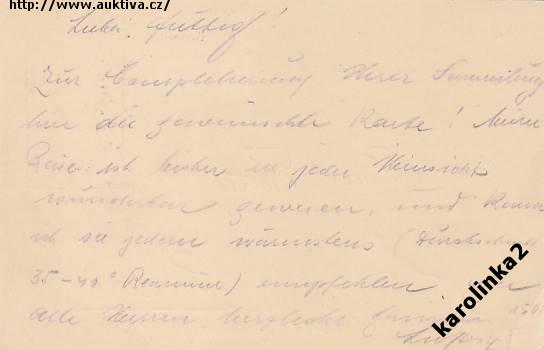 http://www.auktiva.cz/
Lieber
Zur Completierung Ihrer Sammlung
hier die gewünschte Karte! Meine
Reise ist bisher in jeder Hinsicht
wunderbar gewesen, und kann
ich sie jedem wärmstens (Durchschnitt
35-40° Reaumur) empfehlen
alle Herren herzliche
karolinka2